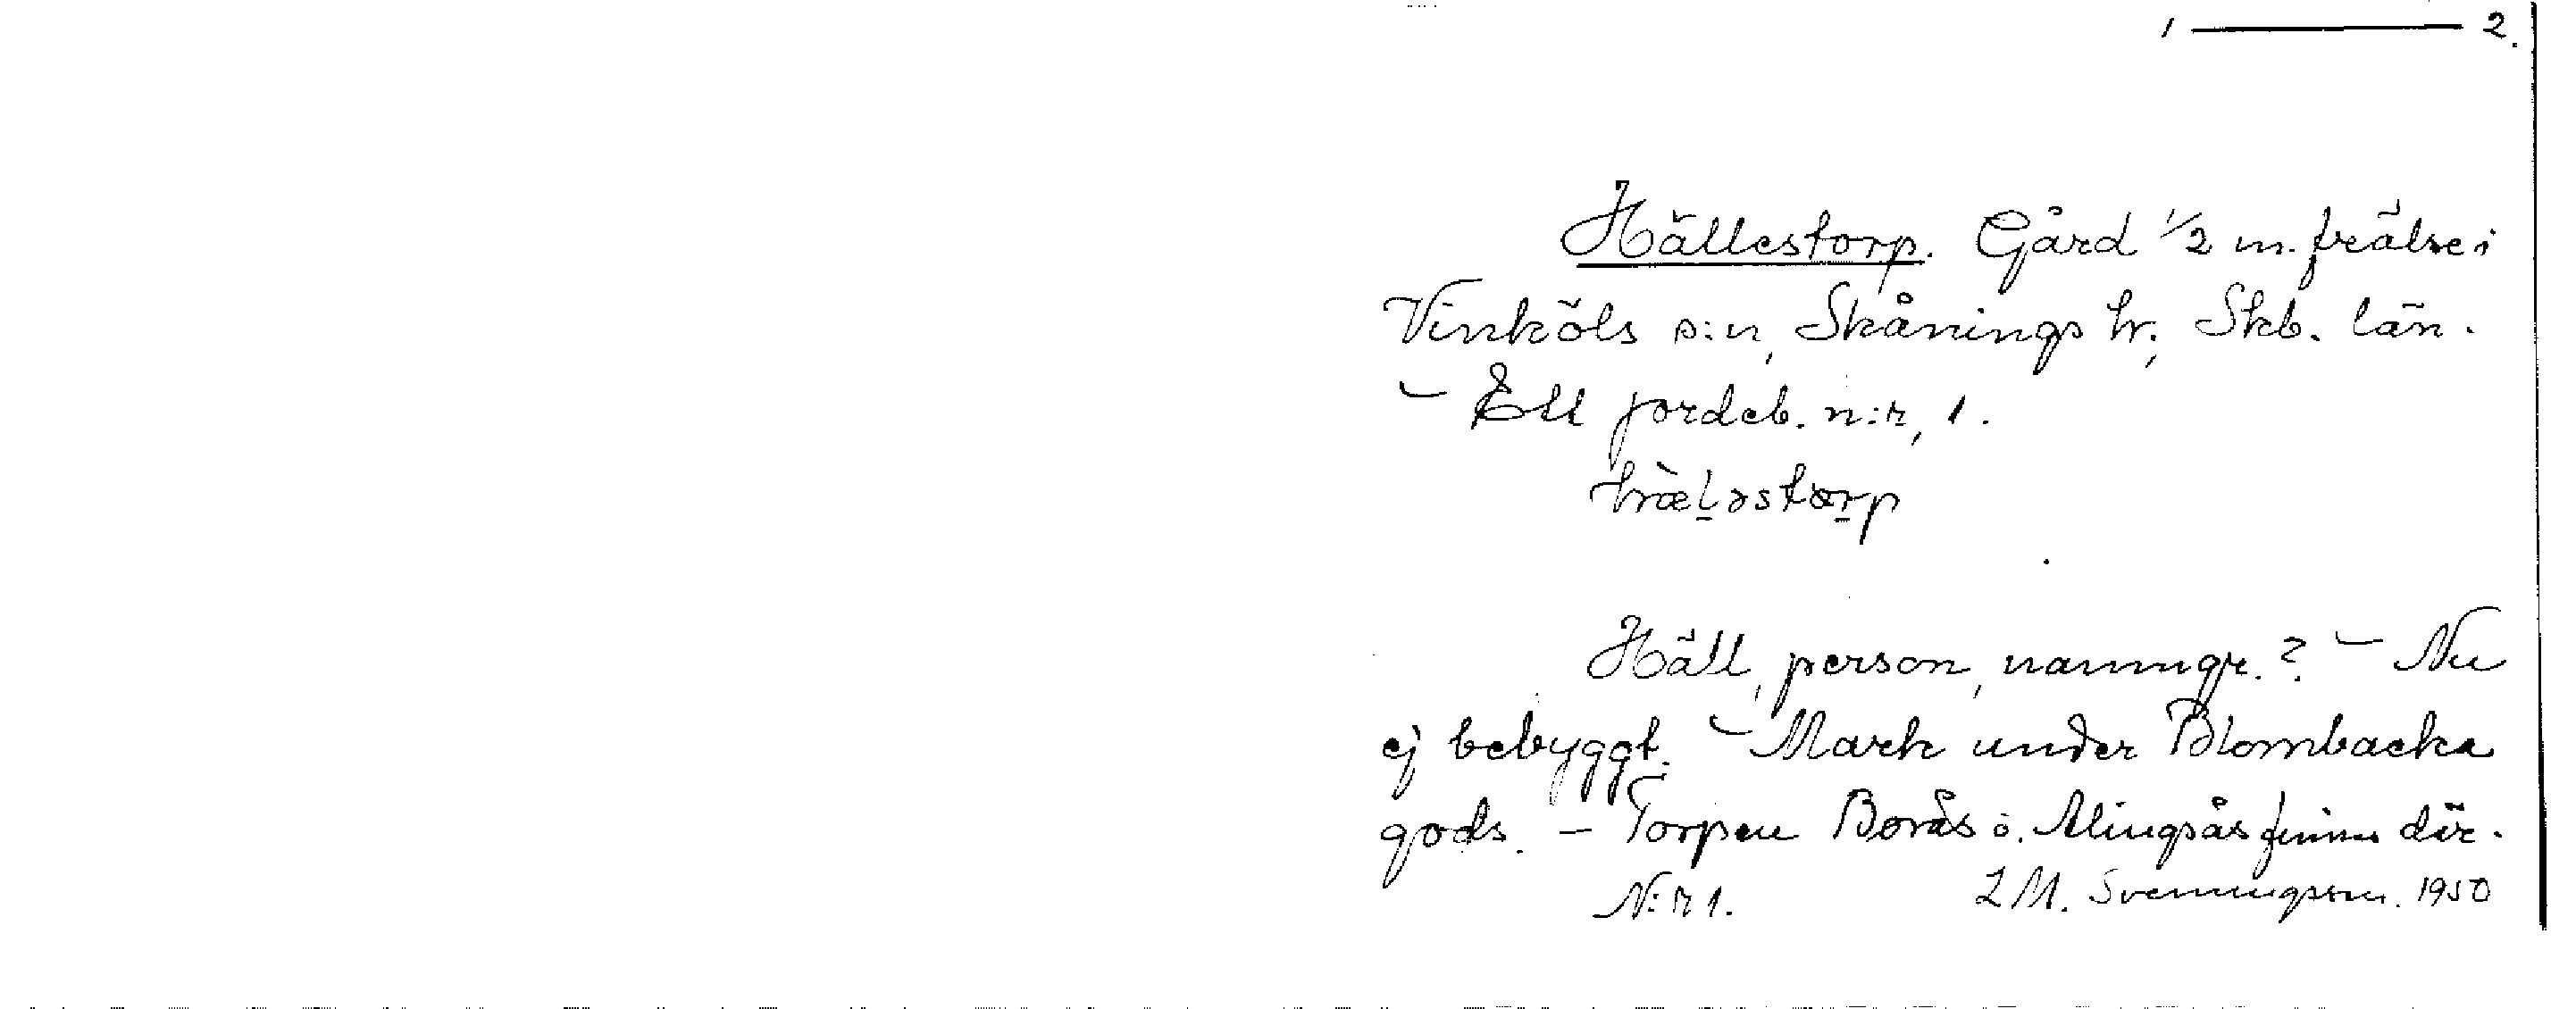 1 — 2.
Hällestorp. Gård 1/2 m. frälse i
Vinköls s:n, Skånings hr., Skb. län.
- Ett jordeb. n:r, 1.
hælastarp
Häll, person, namngr.? - Nu
ej bebyggt. - Mark under Blombacka
gods. - Torpen Borås o. Alingsås finnas där.
N:r 1. L M. Svenningsson. 1950